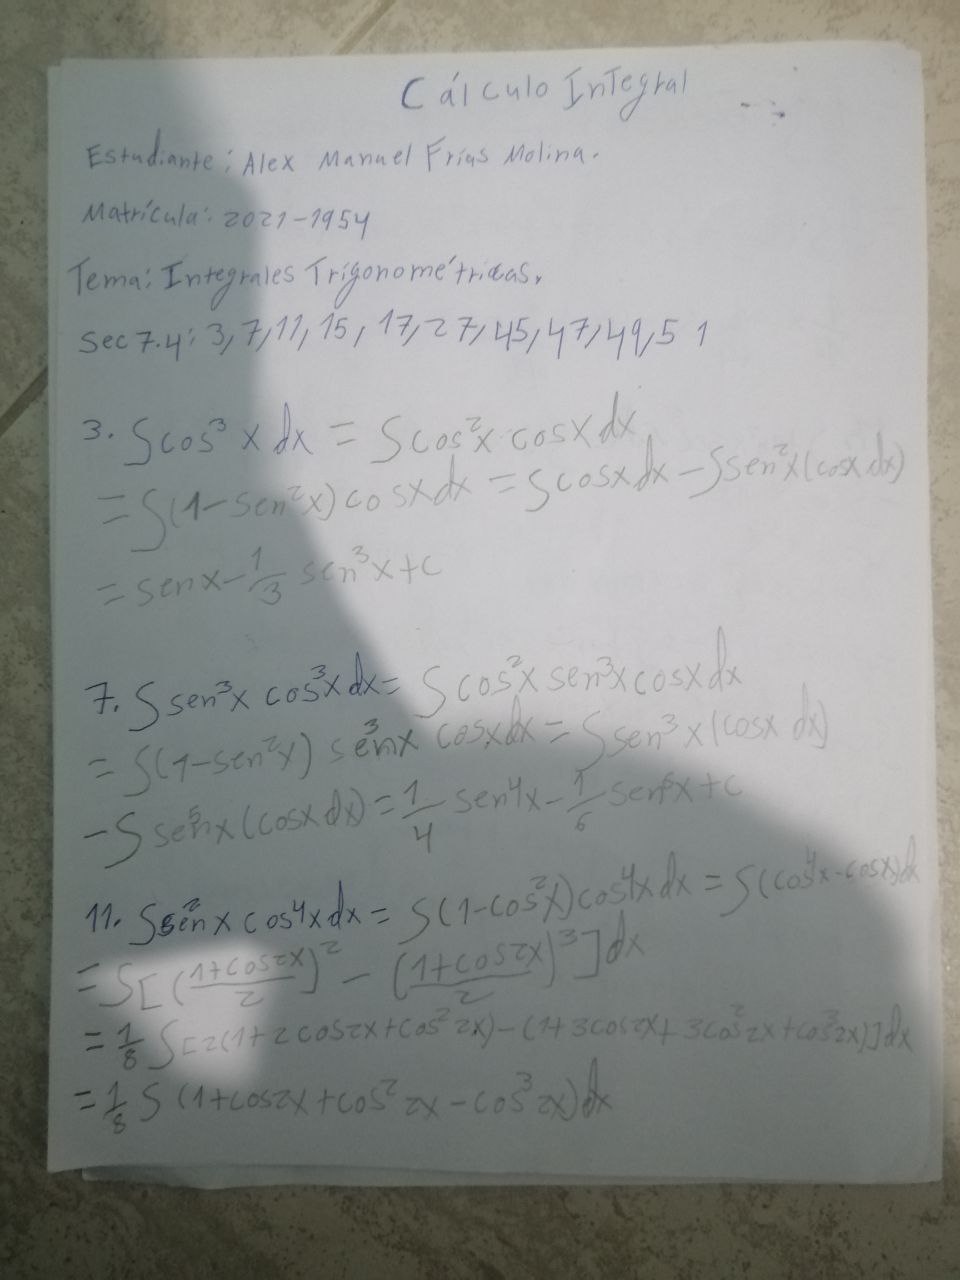 Cálculo Integral
Estudiante: Alex Manuel Frías Molina.
Matrícula: 2021-1954
Tema: Integrales Trigonométricas.
Sec 7.4: 3, 7, 11, 15, 17, 27, 45, 47, 49, 51
3. ∫cos³ x dx = ∫cos²x cosx dx
= ∫(1-sen²x) cosx dx = ∫cosx dx - ∫sen²x(cosx dx)
= senx - 1/3 sen³x + c
7. ∫sen³x cos³x dx = ∫cos²x sen³x cosx dx
= ∫(1-sen²x) sen³x cosx dx = ∫sen³x (cosx dx)
- ∫sen⁵x (cosx dx) = 1/4 sen⁴x - 1/6 sen⁶x + c
11. ∫sen²x cos⁴x dx = ∫(1-cos²x) cos⁴x dx = ∫(cos⁴x - cosx) dx
= ∫[((1+cos2x)/2)² - ((1+cos2x)/2)³] dx
= 1/8 ∫[2(1+2cos2x+cos²2x) - (1+3cos2x+3cos²2x+cos³2x)] dx
= 1/8 ∫(1+cos2x+cos²2x-cos³2x) dx